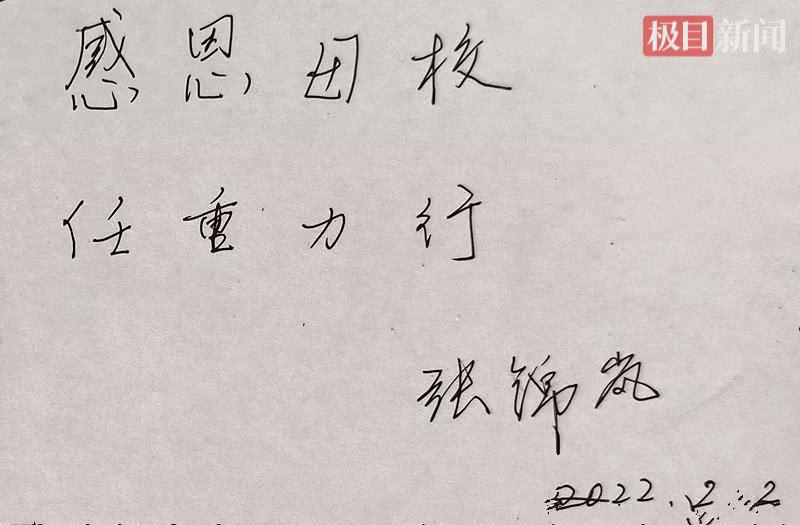 极目新闻
感恩母校
任重力行
张锦岚
2022.2.2